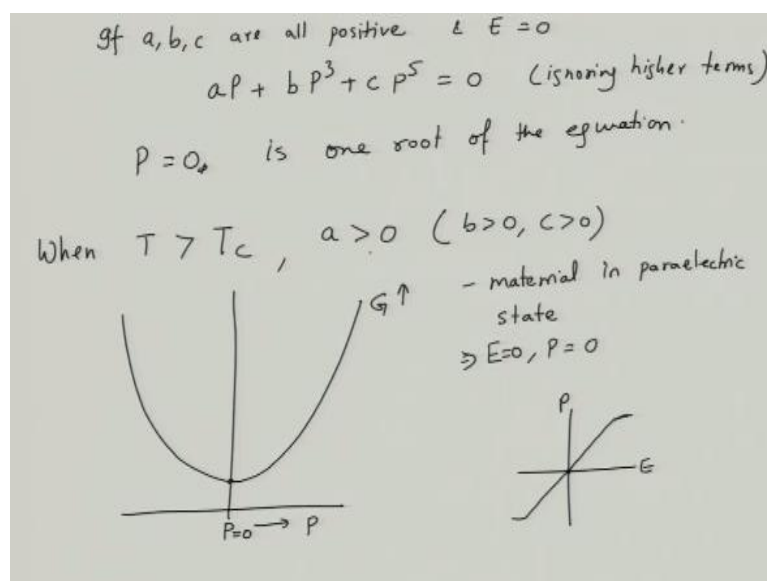 If a, b, c are all positive & E = 0
aP + bP³ + cP⁵ = 0 (ignoring higher terms)
P = 0, is one root of the equation.
When T > Tc, a > 0 (b>0, c>0)
- material in paraelectric
state
⇒ E=0, P = 0
G ↑
P=0 → P
P
E